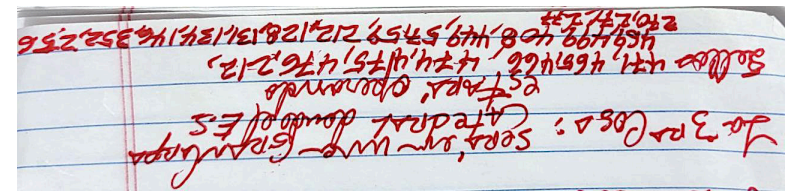 La 3ra Cosa: será, en una Gran Carpa
Catedral donde el ES
estará, operando
Sellos 471, 465, 466, 474, 475, 476, 212,
469, 499, 408, 449, 57, 59, 212, 128, 131, 134, 146, 352, 256
270, 271, 277